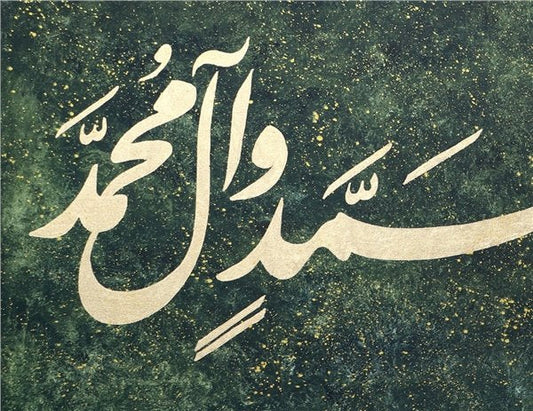 ـحمَّدٍ وآل مُحمَّد